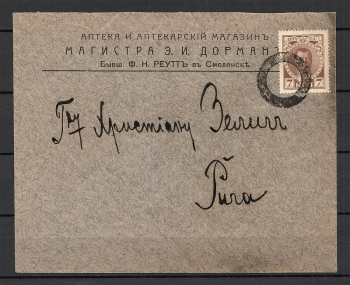 АПТЕКА И АПТЕКАРСКІЙ МАГАЗИНЪ
МАГИСТРА Э. И. ДОРМАНЪ
Бывш Ф. Н. РЕУТТЪ въ Смоленскѣ.
7 7
Христіану
Рига